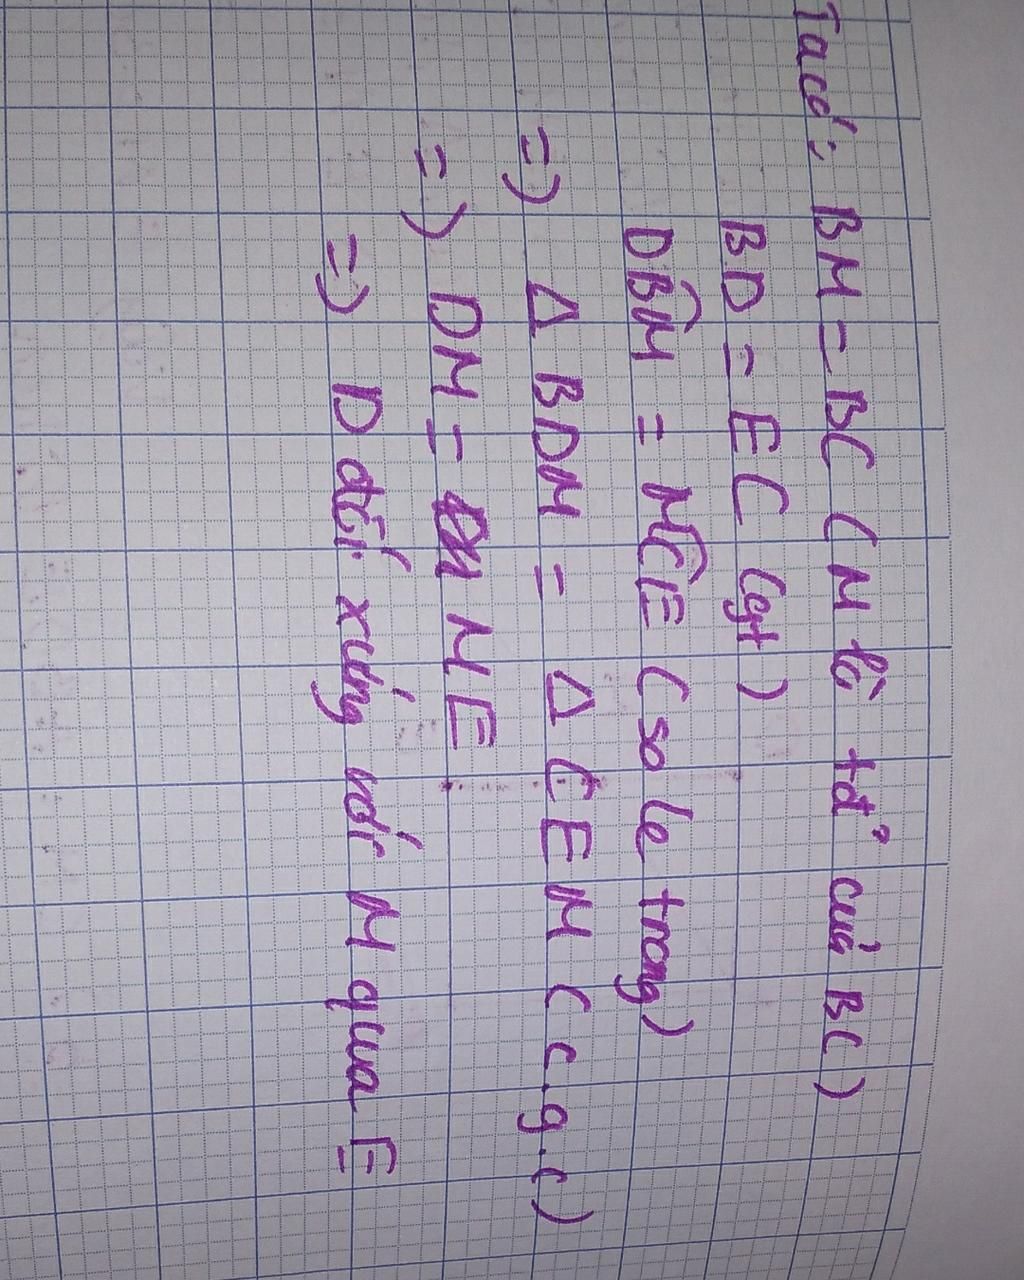 Ta có: BM = BC (M là tđ° của BC)
BD = EC (gt)
DBM = MCE (so le trong)
=) Δ BDM = Δ CEM (c.g.c)
=) DM = ME
=) D đối xứng với M qua E